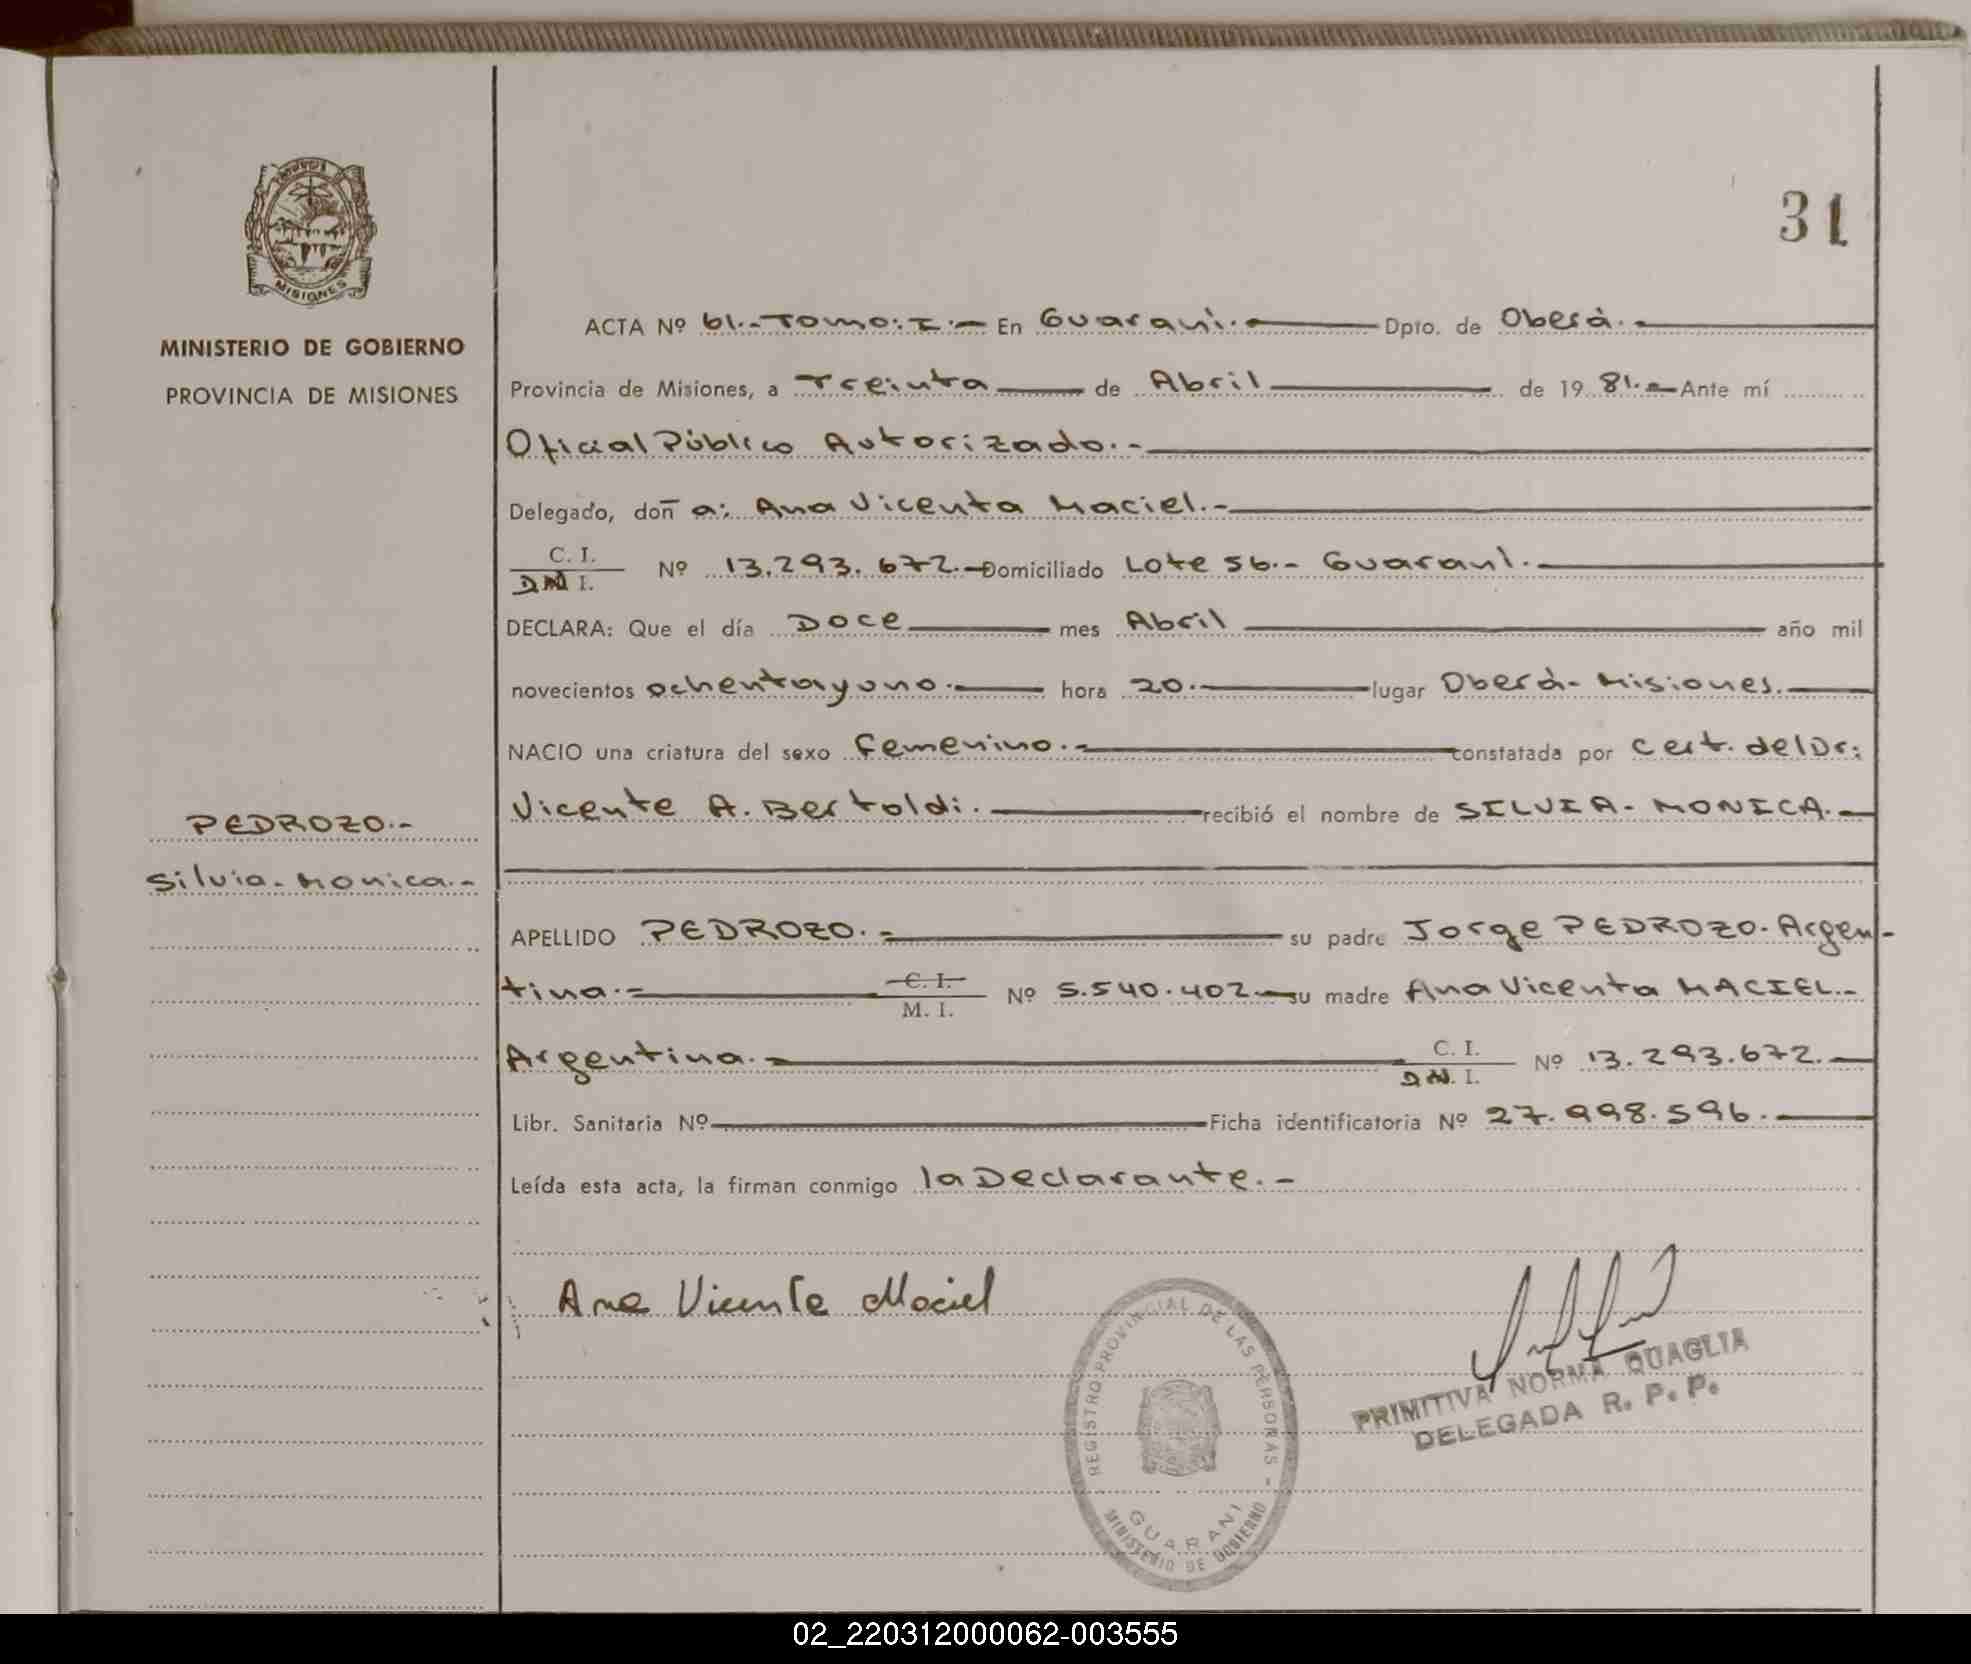 PROVINCIA
MISIONES
MINISTERIO DE GOBIERNO
PROVINCIA DE MISIONES
PEDROZO.-
Silvia-Monica.-
31
ACTA Nº 61.-Tomo:I.- En Guaraní.- Dpto. de Oberá.-
Provincia de Misiones, a Treinta de Abril de 19 81.- Ante mí
Oficial Público Autorizado.-
Delegado, doñ a: Ana Vicenta Maciel.-
C. I.
D.N. I. Nº 13.293.672.- Domiciliado Lote 56.- Guaraní.-
DECLARA: Que el día Doce mes Abril año mil
novecientos ochentayuno.- hora 20.- lugar Oberá-Misiones.-
NACIO una criatura del sexo femenino.- constatada por cert. del Dr:
Vicente A. Bertoldi.- recibió el nombre de SILVIA-MONICA.-
APELLIDO PEDROZO.- su padre Jorge PEDROZO.Argen-
tina.- C. I.
M. I. Nº 5.540.402.- su madre Ana Vicenta MACIEL.-
Argentina.- C. I.
D.N. I. Nº 13.293.672.-
Libr. Sanitaria Nº Ficha identificatoria Nº 27.998.596.-
Leída esta acta, la firman conmigo la Declarante.-
Ana Vicenta Maciel
REGISTRO PROVINCIAL DE LAS PERSONAS -
GUARANI
MINISTERIO DE GOBIERNO
PRIMITIVA NORMA QUAGLIA
DELEGADA R. P. P.
02_220312000062-003555